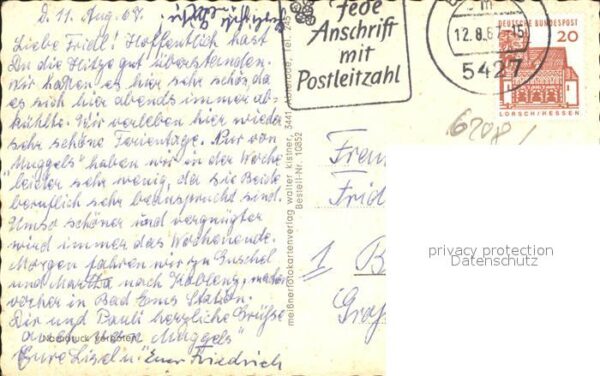 D. 11. Aug. 67.
Liebe Fridl! Hoffentlich hast
Du die Hitze gut überstanden.
Wir hatten es hier sehr schön, da
es sich hier abends immer ab-
kühlte. Wir verleben hier wieder
sehr schöne Ferientage. Nur von
"Muggels" haben wir in der Woche
leider sehr wenig, da sie Beide
beruflich sehr beansprucht sind.
Umso schöner und vergnügter
wird immer das Wochenende.
Morgen fahren wir zu
und Martha nach Koblenz, machen
vorher in Bad Ems Station.
Dir und Pauli herzliche Grüße
auch von Muggels"
Nachdruck verboten
Eure Liesel u. Euer Friedrich
meißnerfotokartenverlag walter kistner, 3441 Tel. 245
Bestell-Nr. 10852
Jede
Anschrift
mit
Postleitzahl
12.8.67-15
5427
DEUTSCHE BUNDESPOST
20
LORSCH/HESSEN
6208/
Frau
Frid
1 B
Groß
privacy protection
Datenschutz